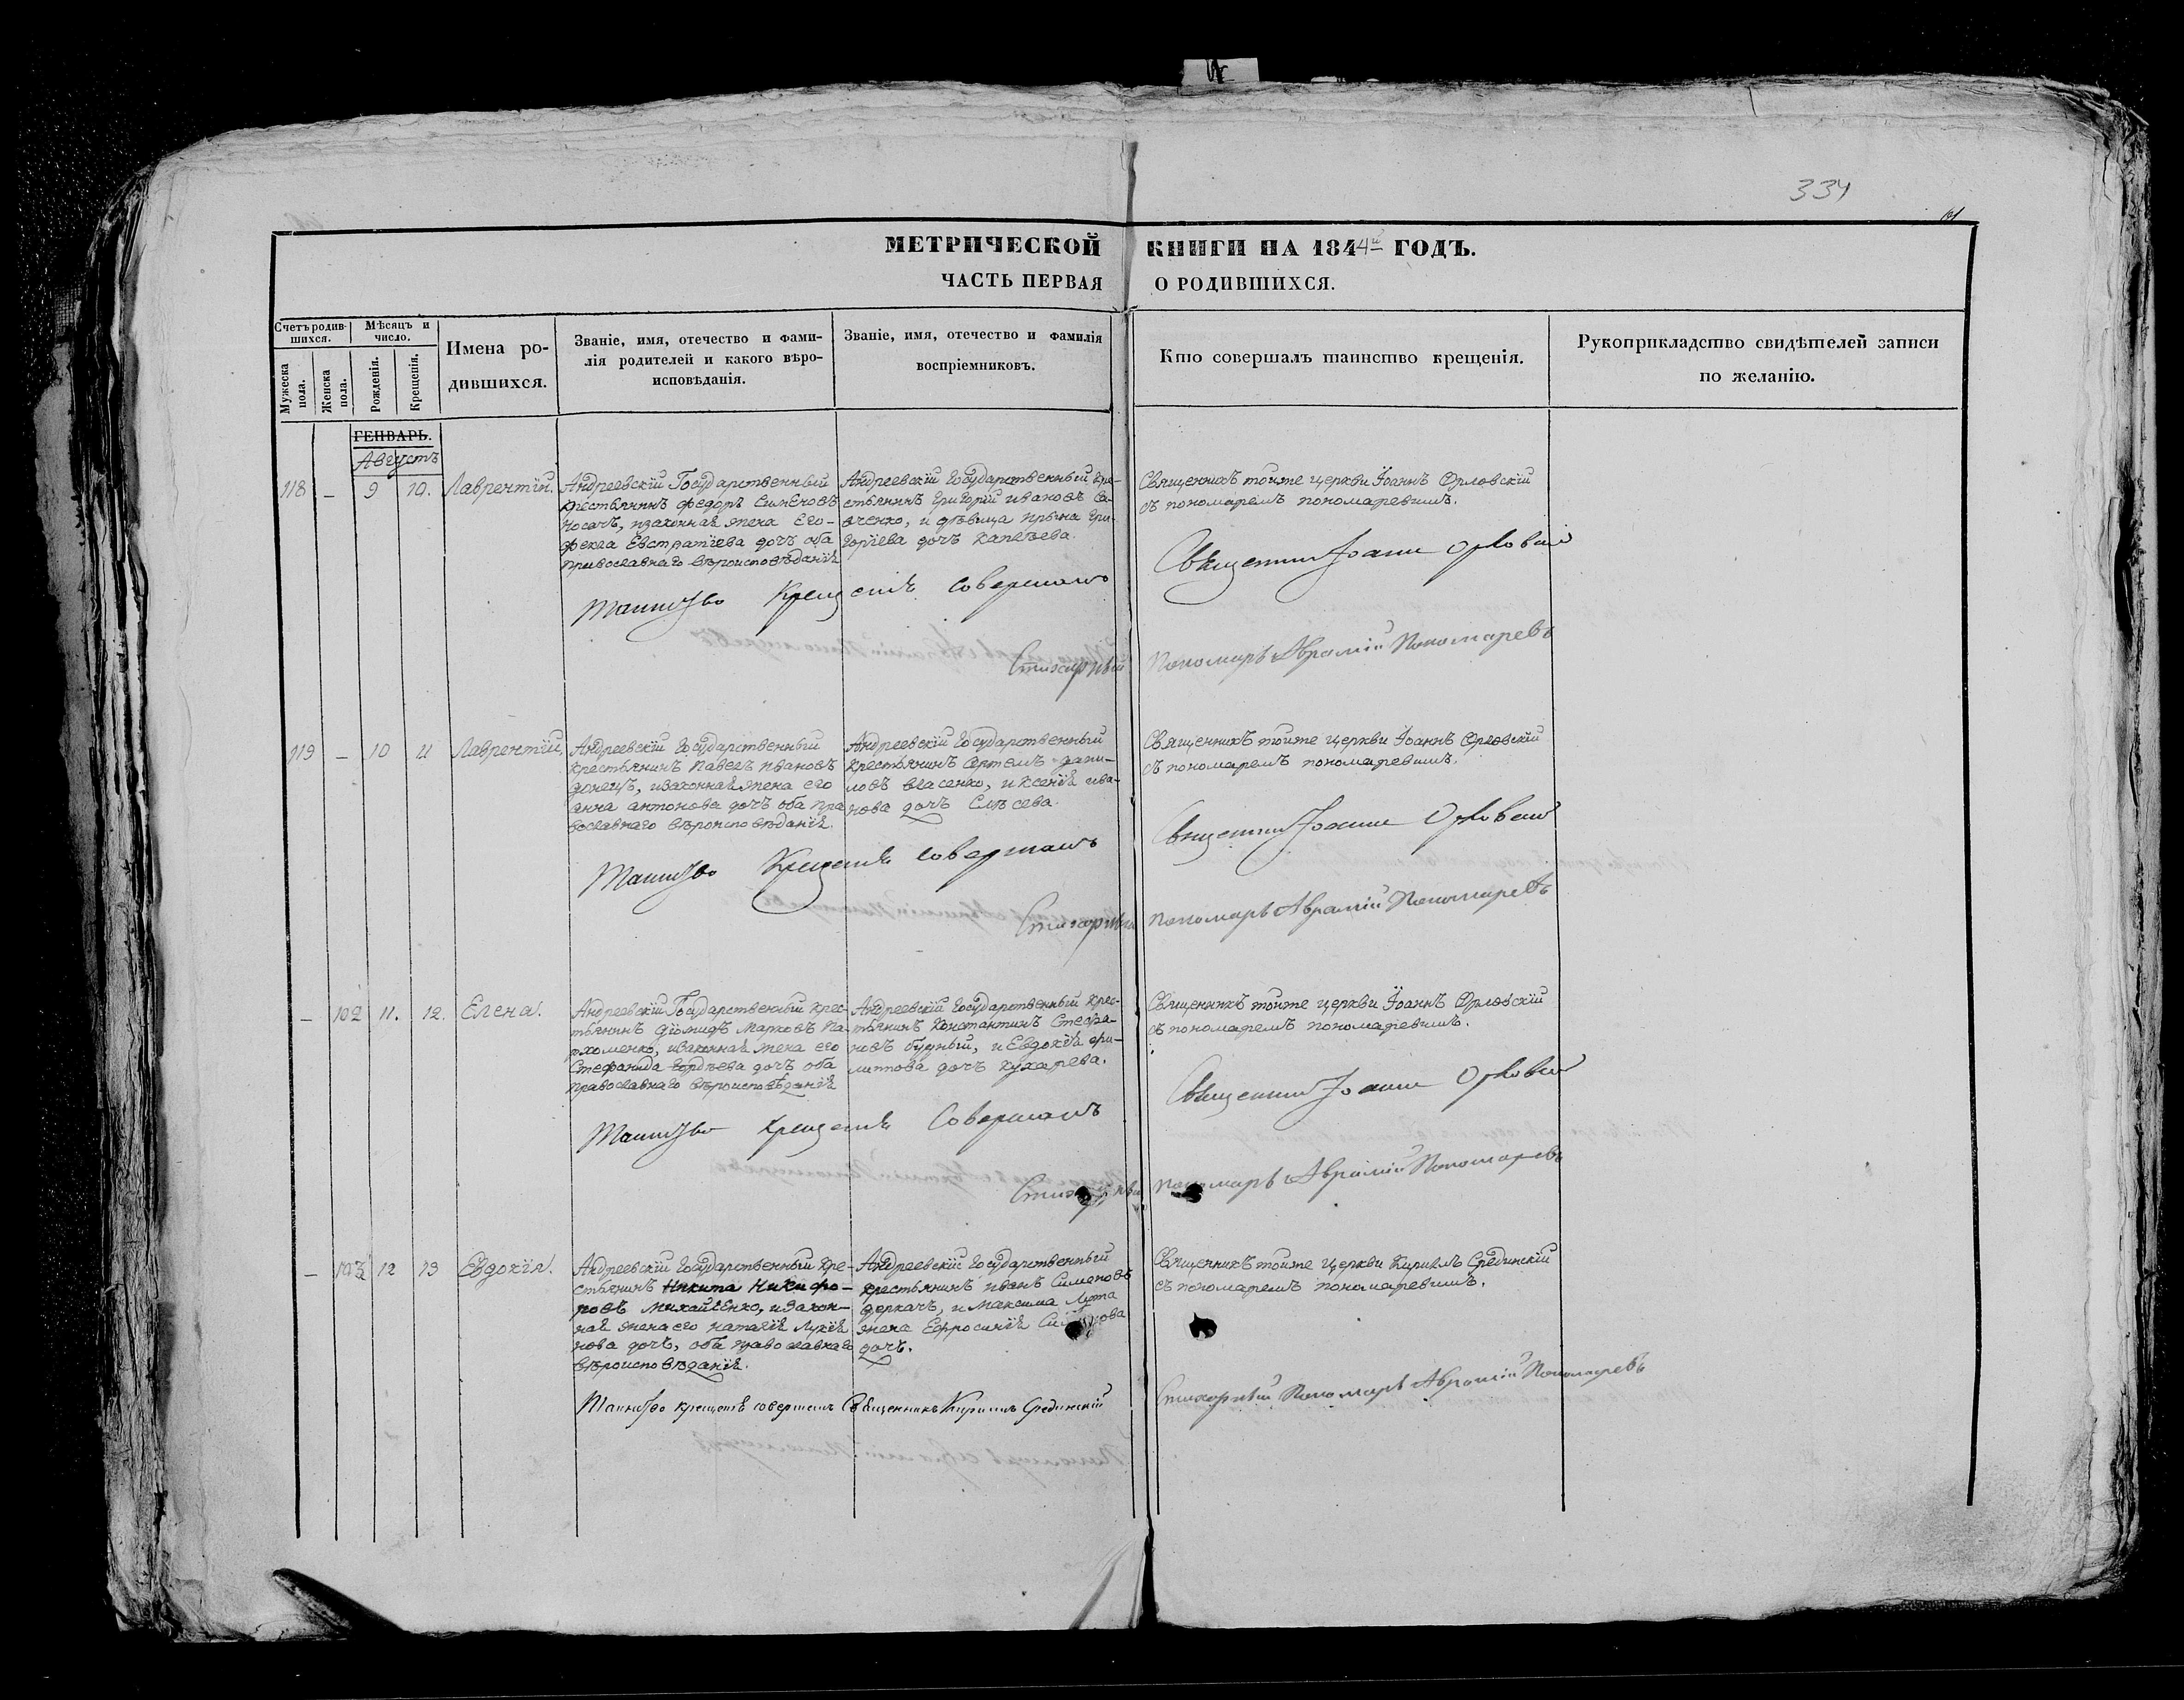 334
МЕТРИЧЕСКОЙ КНИГИ НА 1844й ГОДЪ.
ЧАСТЬ ПЕРВАЯ О РОДИВШИХСЯ.
Счетъ родив-
шихся.
Мужеска
пола.
Женска
пола.
Мѣсяцъ и
число.
Рожденія.
Крещенія.
Имена ро-
дившихся.
Званіе, имя, отечество и фами-
лія родителей и какого вѣро-
исповѣданія.
Званіе, имя, отечество и фамилія
воспріемниковъ.
Кто совершалъ таинство крещенія.
Рукоприкладство свидѣтелей записи
по желанію.
ГЕНВАРЬ.
Августъ
118 – 9 10. Лаврентій.
Андреевскій Государственный
крестьянинъ федоръ Симеоновъ
носачъ, изаконная жена его-
фекла Евстратіева дочь оба
православнаго вѣроисповѣданія
Андреевскій Государственный кре-
стьянинъ Григорій ивановъ Са-
вченко, и дѣвица ирина Гри-
горіева дочь
Священникъ тойже церкви Іоаннъ Орловскій
съ пономаремъ пономаревимъ.
Таинство Крещенія совершалъ
Священникъ Іоаннъ Орловскій
Стихарный Пономарь Аврамій Пономаревъ
119 – 10 11 Лаврентій.
Андреевскій Государственный
крестьянинъ Павелъ ивановъ
донецъ, изаконная жена его
анна антонова дочь оба пра
вославнаго вѣроисповѣданія.
Андреевскій Государственный
крестьянинъ Артемъ дани-
ловъ власенко, и Ксенія ива-
нова дочь
Священникъ тойже церкви Іоаннъ Орловскій
съ пономаремъ пономаревимъ.
Таинство Крещенія совершалъ
Священникъ Іоаннъ Орловскій
Стихарный пономарь Аврамій Пономаревъ
– 102 11. 12. Елена.
Андреевскій Государственный крес-
тьянинъ діомидъ Марковъ Па-
рхоменко, изаконная жена его
Стефанида Гордѣева дочь оба
православнаго вѣроисповѣданія
Андреевскій Государственный крес-
тьянинъ Константинъ Стефа-
новъ будный, и Евдокія фи-
липпова дочь кухарева.
Священникъ тойже церкви Іоаннъ Орловскій
съ пономаремъ пономаревимъ.
Таинство крещенія Совершалъ
Священникъ Іоаннъ Орловскій
Стихарный пономарь Аврамій Пономаревъ
– 103 12 13 Евдокія.
Андреевскій Государственный кре-
стьянинъ Никита Никифо-
ровъ Михайленко, изакон-
ная жена его наталія Лукія
нова дочь, оба православнаго
вѣроисповѣданія.
Андреевскій Государственный
крестьянинъ иванъ Симеоновъ
деркачъ, и Максима Люта
жена Ефросинія
дочь.
Священникъ тойже Церкви Кириллъ Срединскій
съ пономаремъ пономаревимъ.
Таинство крещенія совершалъ Священникъ Кириллъ Срединскій
Стихарный Пономарь Аврамій Пономаревъ